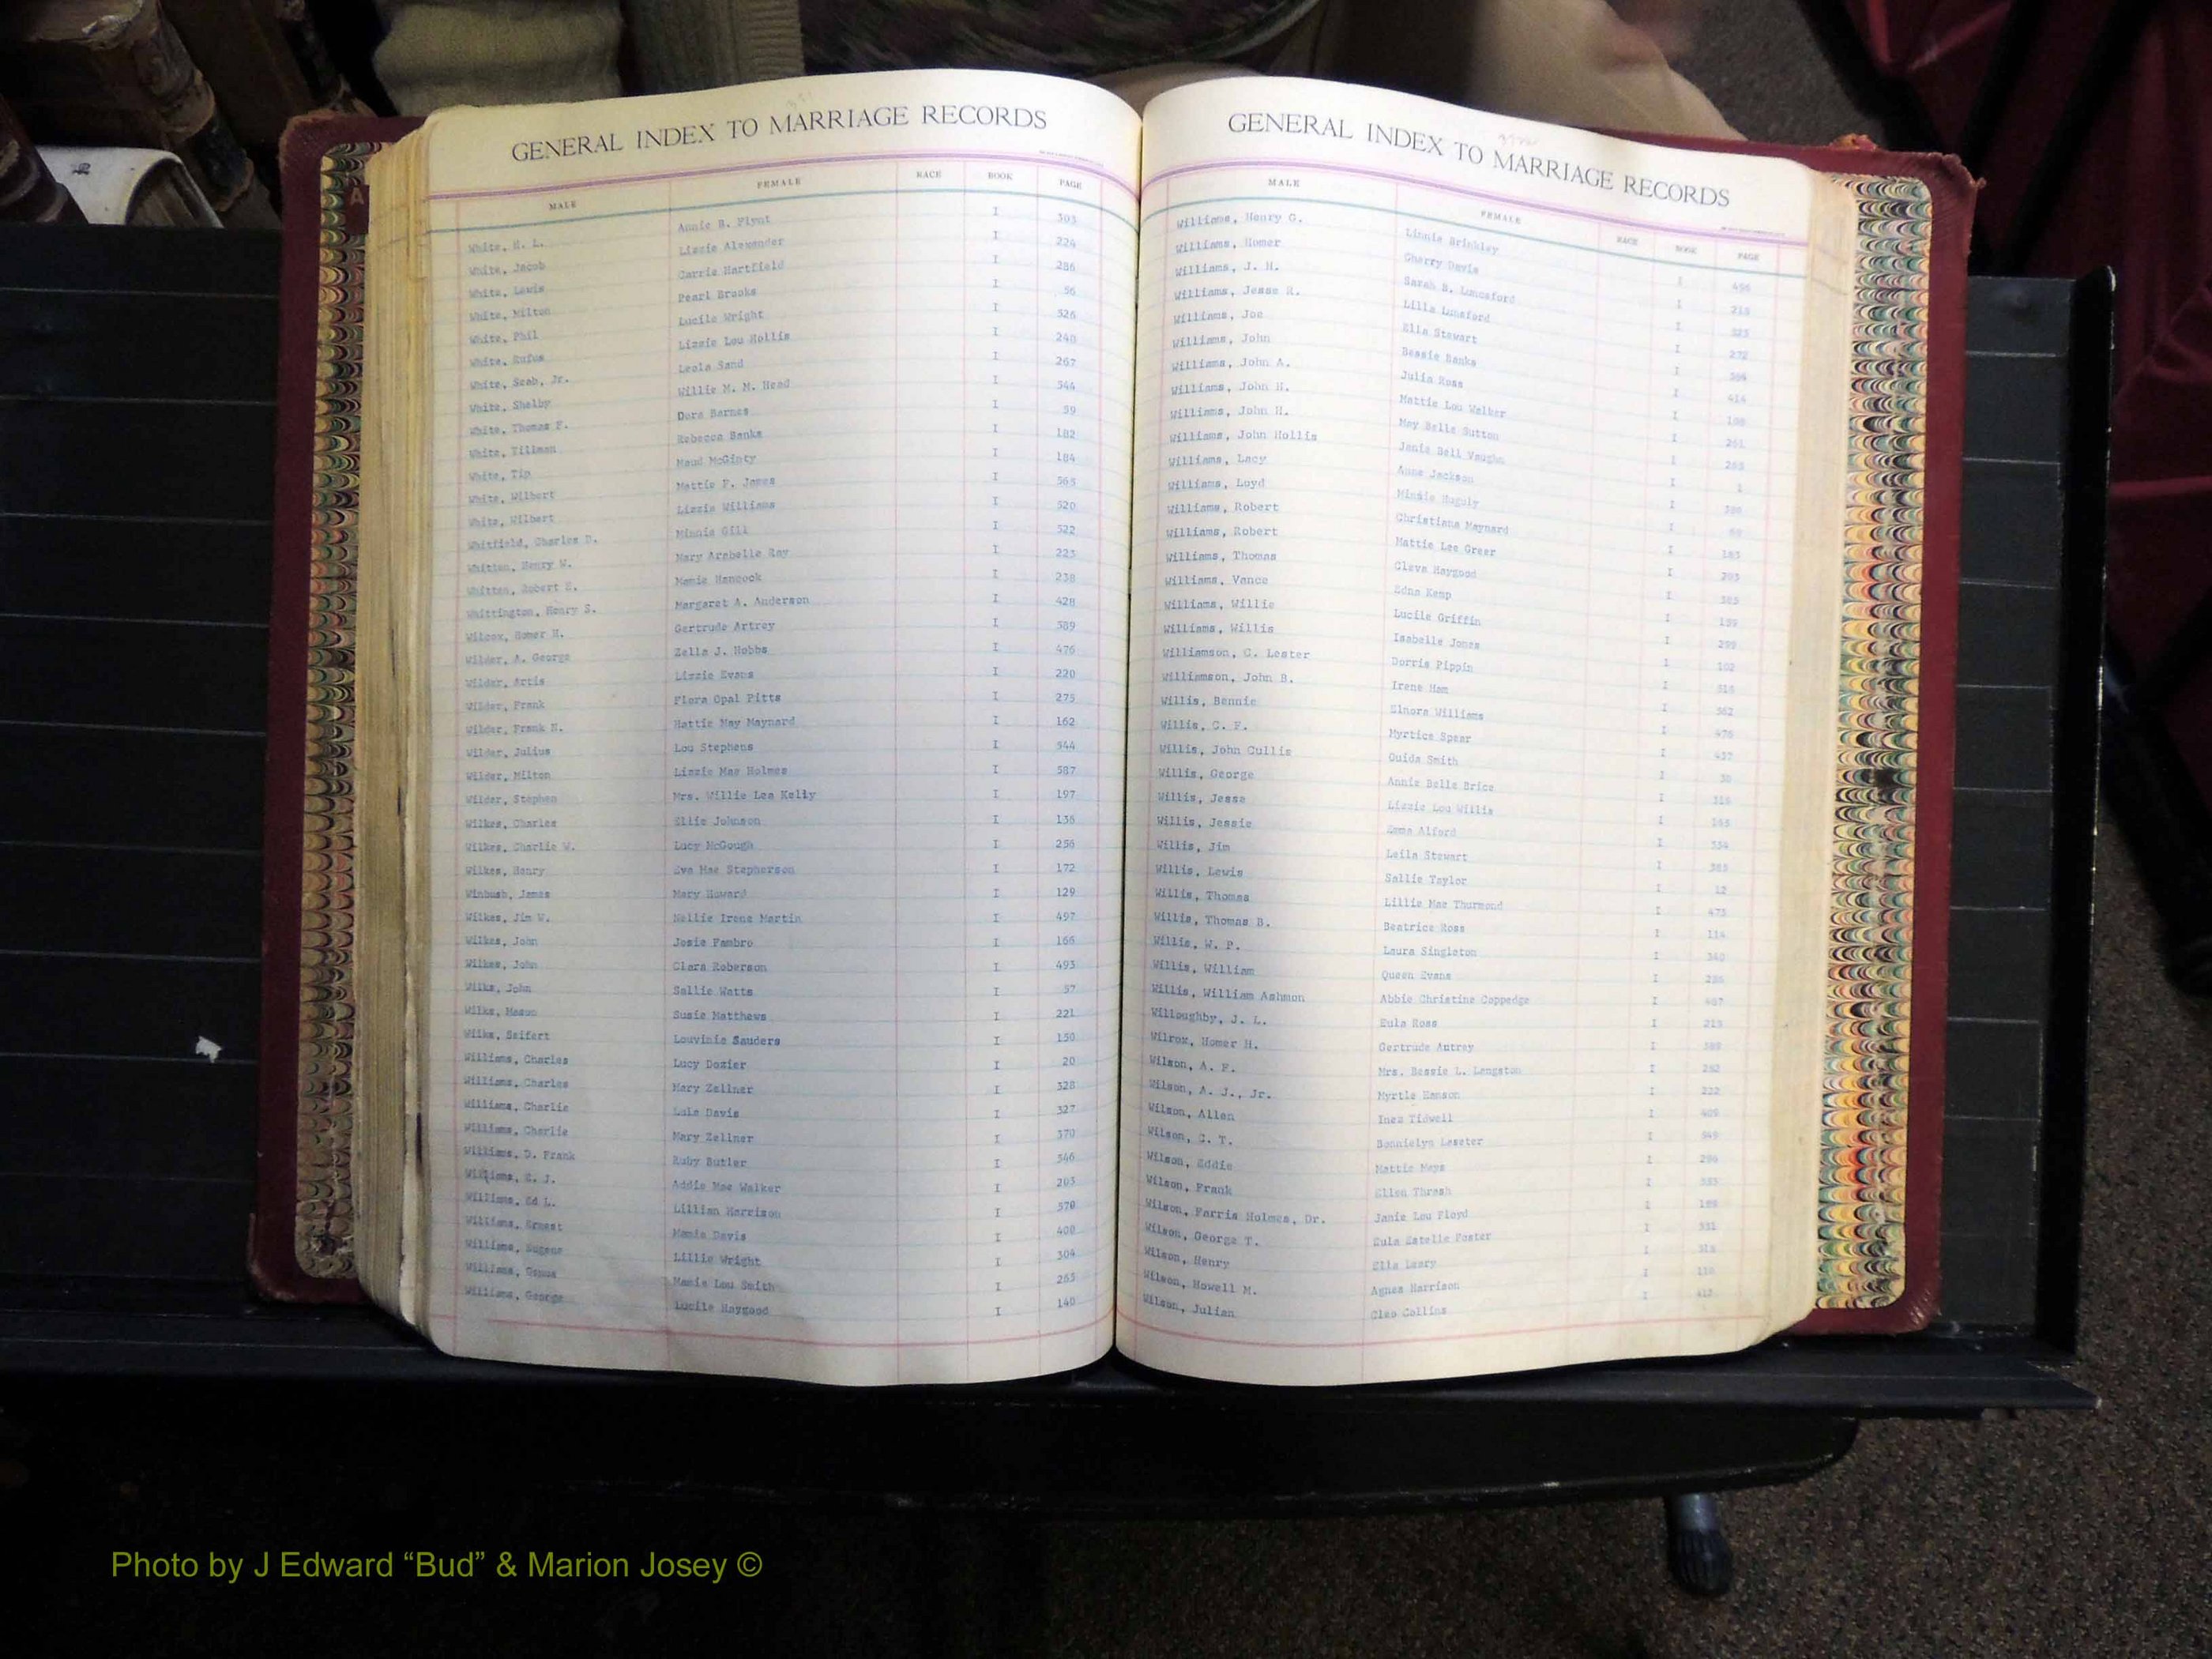 GENERAL INDEX TO MARRIAGE RECORDS
MALE FEMALE RACE BOOK PAGE
White, H. L. Annie B. Flynt I 303
White, Jacob Lizzie Alexander I 224
White, Lewis Carrie Hartfield I 286
White, Milton Pearl Brooks I 56
White, Phil Lucile Wright I 326
White, Rufus Lizzie Lou Hollis I 240
White, Seab, Jr. Leola Sand I 267
White, Shelby Willie M. M. Head I 344
White, Thomas F. Dora Barnes I 59
White, Tillman Rebecca Banks I 182
White, Tip Maud McGinty I 184
White, Wilbert Mattie F. Jones I 365
White, Wilbert Lizzie Williams I 520
Whitfield, Charles D. Minnie Gill I 522
Whitten, Henry W. Mary Arabelle Ray I 223
Whitten, Robert E. Mamie Hancock I 238
Whittington, Henry S. Margaret A. Anderson I 428
Wilcox, Homer H. Gertrude Artrey I 589
Wilder, A. George Zella J. Hobbs I 476
Wilder, Artis Lizzie Evans I 220
Wilder, Frank Flora Opal Pitts I 275
Wilder, Frank N. Hattie May Maynard I 162
Wilder, Julius Lou Stephens I 544
Wilder, Milton Lizzie Mae Holmes I 587
Wilder, Stephen Mrs. Willie Lea Kelly I 197
Wilkes, Charles Ellie Johnson I 136
Wilkes, Charlie W. Lucy McGough I 256
Wilkes, Henry Eva Mae Stepherson I 172
Winbush, James Mary Howard I 129
Wilkes, Jim W. Nellie Irene Martin I 497
Wilkes, John Josie Fambro I 166
Wilkes, John Clara Roberson I 493
Wilks, John Sallie Watts I 37
Wilks, Mason Susie Matthews I 221
Wilks, Seifert Louvinie Sauders I 150
Williams, Charles Lucy Dozier I 20
Williams, Charles Mary Zellner I 328
Williams, Charlie Lula Davis I 327
Williams, Charlie Mary Zellner I 370
Williams, D. Frank Ruby Butler I 546
Williams, E. J. Addie Mae Walker I 203
Williams, Ed L. Lillian Harrison I 570
Williams, Ernest Mamie Davis I 400
Williams, Eugene Lillie Wright I 304
Williams, Genus Mamie Lou Smith I 263
Williams, George Lucile Haygood I 140
GENERAL INDEX TO MARRIAGE RECORDS
MALE FEMALE RACE BOOK PAGE
Williams, Henry G. Linnie Brinkley I 496
Williams, Homer Cherry Davis I 213
Williams, J. H. Sarah B. Lunceford I
Williams, Jesse R. Lilla Lunsford I 272
Williams, Joe Ella Stewart I
Williams, John Bessie Banks I 414
Williams, John A. Julia Ross I 108
Williams, John H. Mattie Lou Walker I 261
Williams, John H. May Belle Sutton I 263
Williams, John Hollis Janie Bell Vaughn I 1
Williams, Lacy Anna Jackson I
Williams, Loyd Minnie Huguly I
Williams, Robert Christiana Maynard I 183
Williams, Robert Mattie Lee Greer I 203
Williams, Thomas Cleva Haygood I
Williams, Vance Edna Kemp I 159
Williams, Willie Lucile Griffin I 299
Williams, Willis Isabelle Jones I 102
Williamson, C. Lester Dorris Pippin I 314
Williamson, John B. Irene Ham I 362
Willis, Bennie Elnora Williams I 476
Willis, C. F. Myrtice Spear I 437
Willis, John Cullis Ouida Smith I 30
Willis, George Annie Belle Brice I 316
Willis, Jesse Lizzie Lou Willis I 163
Willis, Jessie Emma Alford I 334
Willis, Jim Leila Stewart I 383
Willis, Lewis Sallie Taylor I 12
Willis, Thomas Lillie Mae Thurmond I 473
Willis, Thomas B. Beatrice Ross I 114
Willis, W. P. Laura Singleton I 340
Willis, William Queen Evans I 230
Willis, William Ashmon Abbie Christine Coppedge I 407
Willoughby, J. L. Eula Ross I 213
Wilrox, Homer H. Gertrude Autrey I 589
Wilson, A. F. Mrs. Bessie L. Langston I 282
Wilson, A. J., Jr. Myrtle Hanson I 222
Wilson, Allen Inez Tidwell I 409
Wilson, C. T. Bonnielyn Leseter I 549
Wilson, Eddie Mattie Mays I 296
Wilson, Frank Ellen Thrash I 333
Wilson, Farris Holmes, Dr. Janie Lou Floyd I 188
Wilson, George T. Eula Estelle Foster I 331
Wilson, Henry Ella Leary I 318
Wilson, Howell M. Agnes Harrison I 110
Wilson, Julian Cleo Collins I 417
Photo by J Edward “Bud” & Marion Josey ©